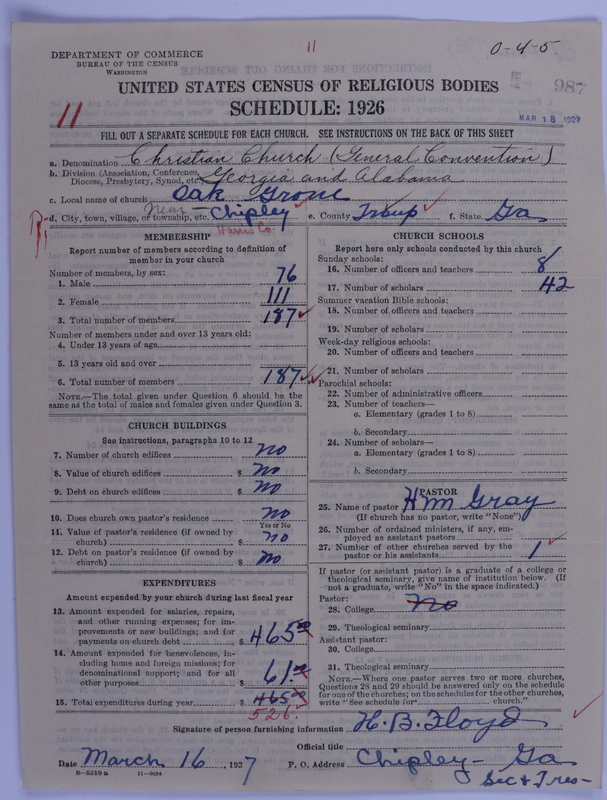 11
0-4-5
DEPARTMENT OF COMMERCE
BUREAU OF THE CENSUS
WASHINGTON
987
UNITED STATES CENSUS OF RELIGIOUS BODIES
SCHEDULE: 1926
11
MAR 18 1927
FILL OUT A SEPARATE SCHEDULE FOR EACH CHURCH. SEE INSTRUCTIONS ON THE BACK OF THIS SHEET
a. Denomination Christian Church (General Convention)
b. Division (Association, Conference, Diocese, Presbytery, Synod, etc.) Georgia and Alabama
c. Local name of church Oak Grove
d. City, town, village, or township, etc. Near Chipley e. County Troup f. State Ga
Harris Co.
MEMBERSHIP
Report number of members according to definition of
member in your church
Number of members, by sex:
1. Male 76
2. Female 111
3. Total number of members 187
Number of members under and over 13 years old:
4. Under 13 years of age
5. 13 years old and over
6. Total number of members 187
NOTE.—The total given under Question 6 should be the
same as the total of males and females given under Question 3.
CHURCH BUILDINGS
See instructions, paragraphs 10 to 12
7. Number of church edifices no
8. Value of church edifices $ no
9. Debt on church edifices $ no
10. Does church own pastor's residence no
Yes or No
11. Value of pastor's residence (if owned by
church) $ no
12. Debt on pastor's residence (if owned by
church) $ no
EXPENDITURES
Amount expended by your church during last fiscal year
13. Amount expended for salaries, repairs,
and other running expenses; for im-
provements or new buildings; and for
payments on church debt $ 465.00
14. Amount expended for benevolences, in-
cluding home and foreign missions; for
denominational support; and for all
other purposes $ 61.00
15. Total expenditures during year $ 465.00
526.
CHURCH SCHOOLS
Report here only schools conducted by this church
Sunday schools:
16. Number of officers and teachers 8
17. Number of scholars 42
Summer vacation Bible schools:
18. Number of officers and teachers
19. Number of scholars
Week-day religious schools:
20. Number of officers and teachers
21. Number of scholars
Parochial schools:
22. Number of administrative officers
23. Number of teachers—
a. Elementary (grades 1 to 8)
b. Secondary
24. Number of scholars—
a. Elementary (grades 1 to 8)
b. Secondary
PASTOR
25. Name of pastor HW Gray
(If church has no pastor, write "None")
26. Number of ordained ministers, if any, em-
ployed as assistant pastors
27. Number of other churches served by the
pastor or his assistants 1
If pastor (or assistant pastor) is a graduate of a college or
theological seminary, give name of institution below. (If
not a graduate, write "No" in the space indicated.)
Pastor:
28. College No
29. Theological seminary
Assistant pastor:
30. College
31. Theological seminary
NOTE.—Where one pastor serves two or more churches,
Questions 28 and 29 should be answered only on the schedule
for one of the churches; on the schedules for the other churches,
write "See schedule for church."
Signature of person furnishing information H. B. Floyd
Official title
Date March 16, 1927 P. O. Address Chipley - Ga
Sec & Tres-
8-5518 a 11-9064